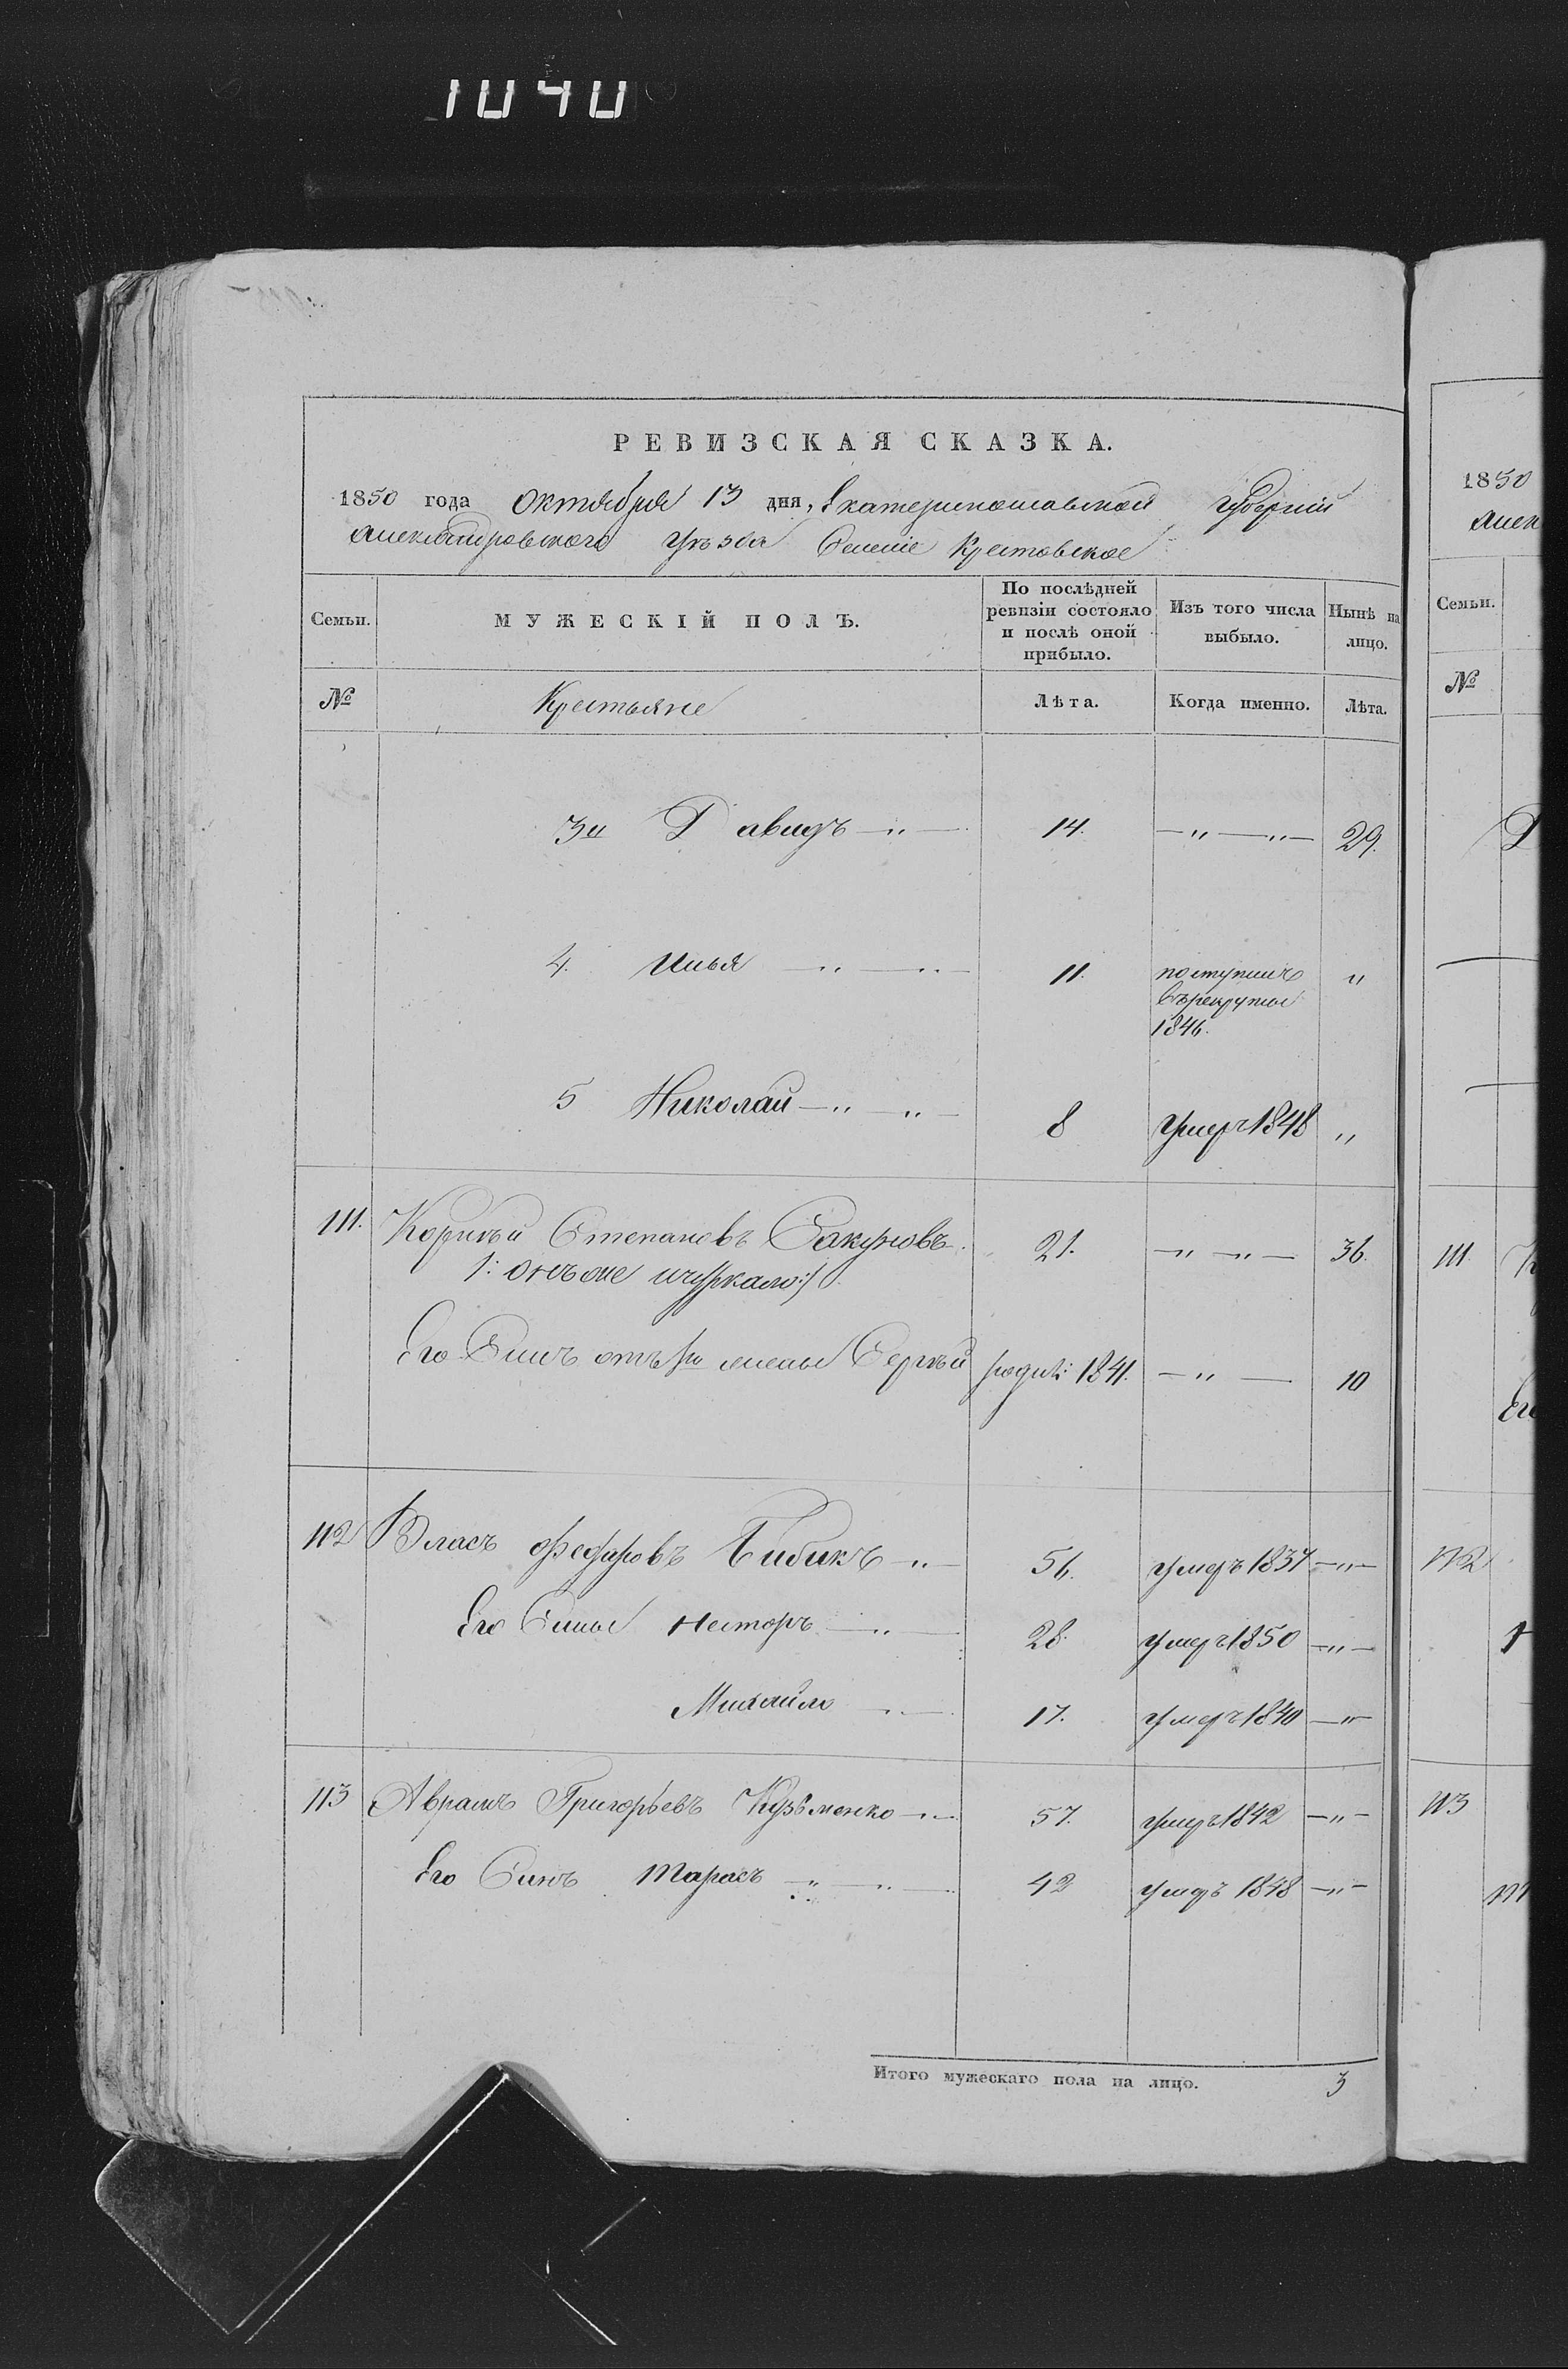 1040
РЕВИЗСКАЯ СКАЗКА.
1850 года Октября 13 дня, Екатеринославской Губерніи
Александровскаго Уѣзда Селеніе Крестовское
Семьи. МУЖЕСКІЙ ПОЛЪ. По послѣдней ревизіи состояло и послѣ оной прибыло. Изъ того числа выбыло. Нынѣ на лицо.
№ Крестьяне Лѣта. Когда именно. Лѣта.
3й Давидъ —„— 14. —„—„— 29.
4. Илья —„—„— 11. поступилъ „
въ рекруты
1846.
5 Николай —„—„— 8 Умеръ 1848 „
111. Корнѣй Степановъ 21. —„—„— 36.
/: онъ же
Его Сынъ отъ жены Сергѣй родил: 1841. —„— 10
112 Власъ Федоровъ Бибикъ —„— 56. умеръ 1837 —„—
Его Сыны Несторъ —„— 28. умеръ 1850 —„—
Михайло —„— 17. умеръ 1840 —„—
113 Аврамъ Григорьевъ Кузьменко —„— 57. умеръ 1842 —„—
Его Сынъ Тарасъ —„—„— 42 умеръ 1848 —„—
Итого мужескаго пола на лицо. 3
1850
Алек
Семьи.
№
Д
111 К
Его
112
Н
113